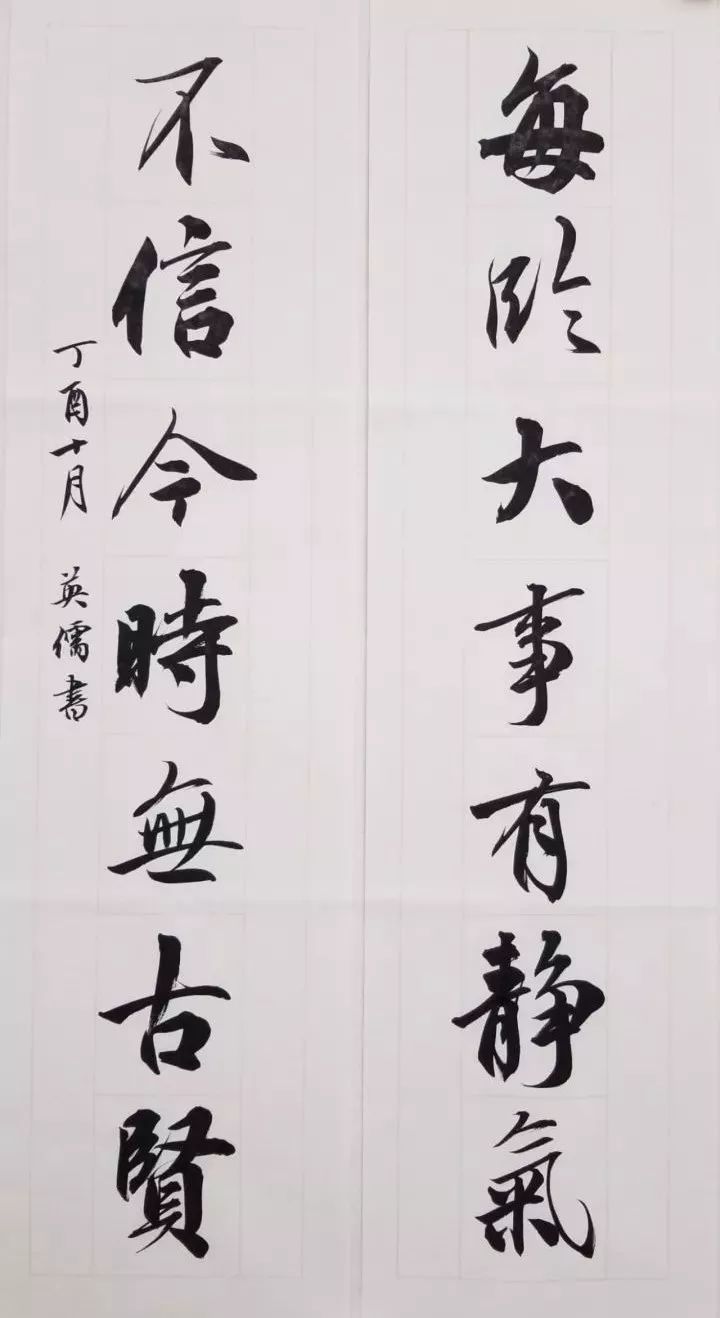 每临大事有静氣
不信今時無古賢
丁酉十月 英儒書